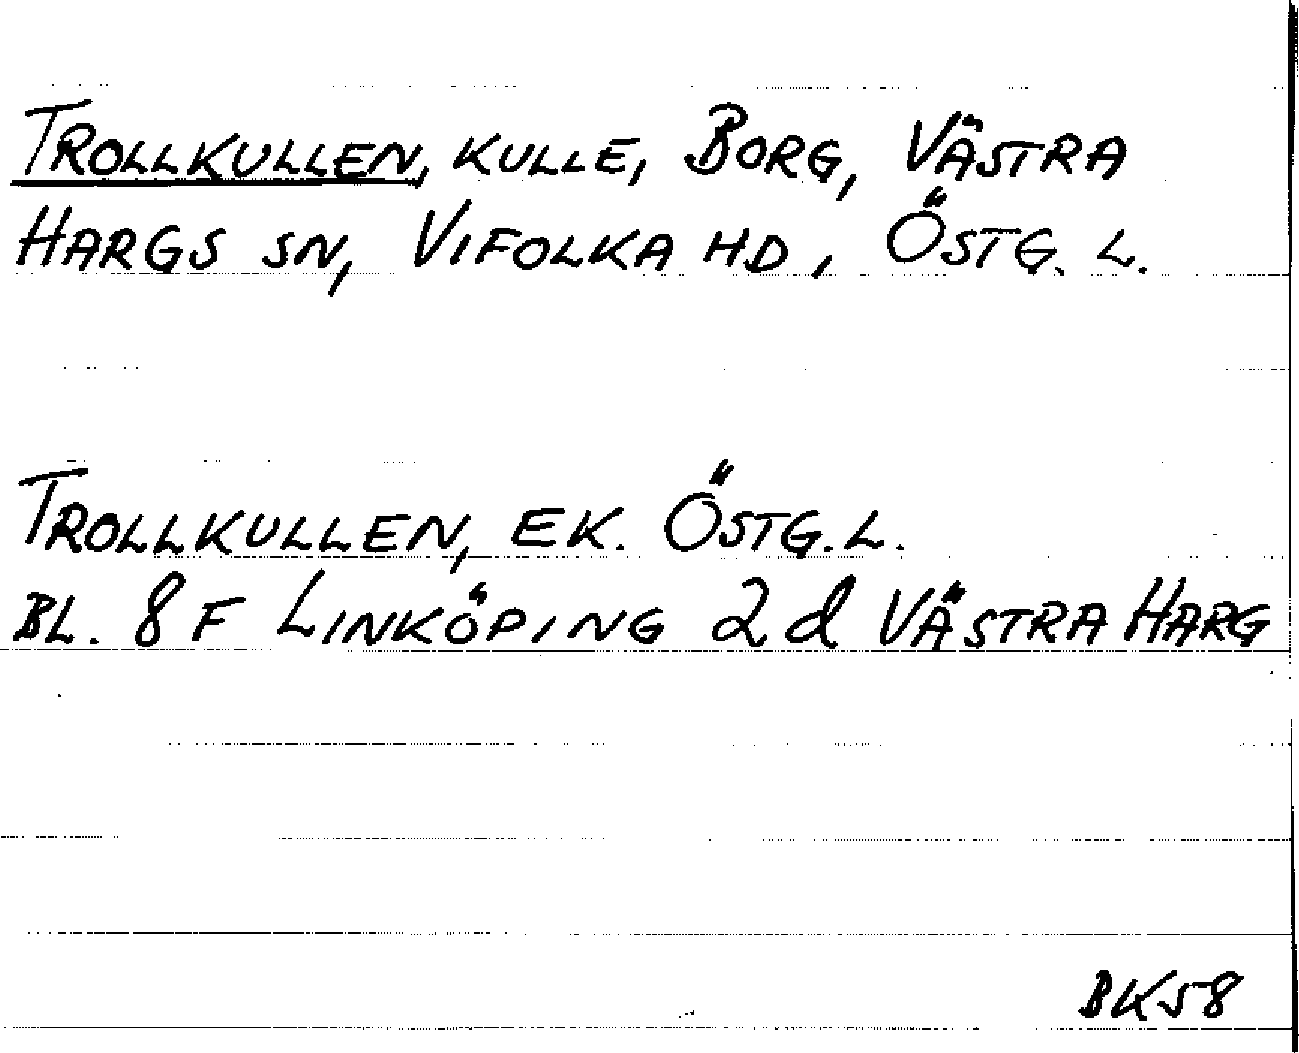 TROLLKULLEN, KULLE, BORG, VÄSTRA
HARGS SN, VIFOLKA HD, ÖSTG. L.
TROLLKULLEN, EK. ÖSTG. L.
BL. 8 F LINKÖPING 2 d VÄSTRA HARG
BK58